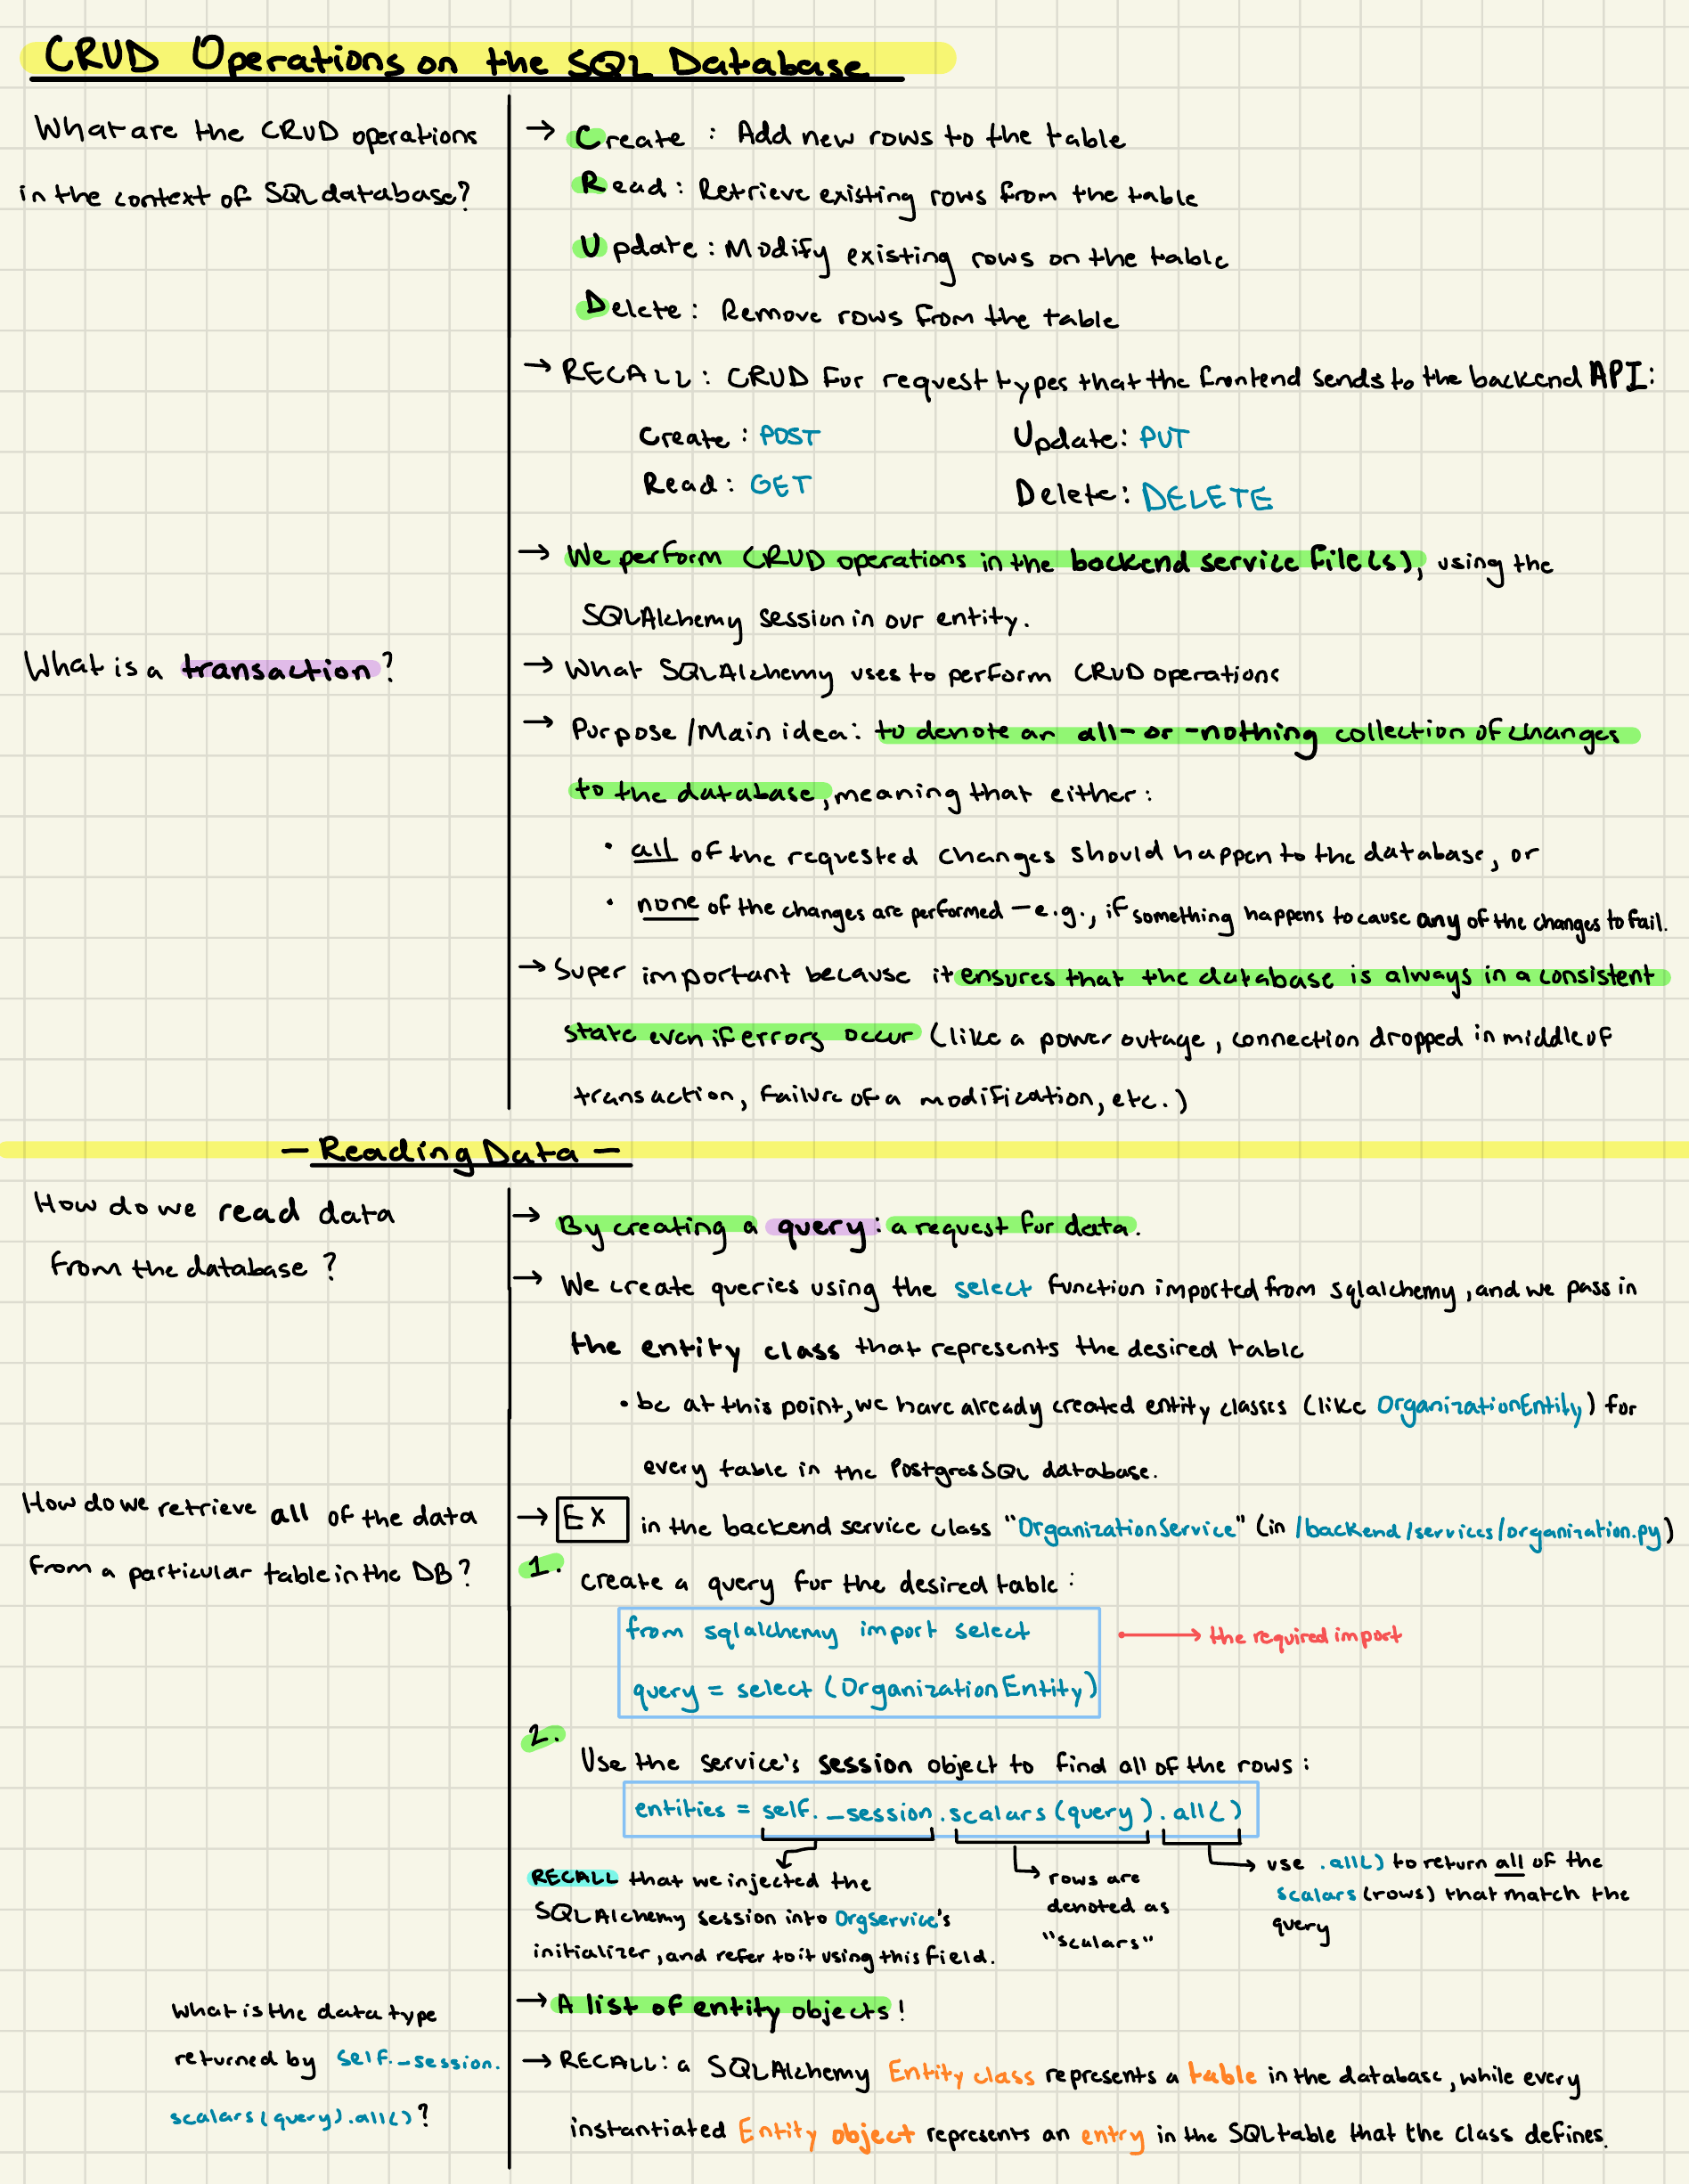 CRUD Operations on the SQL Database
What are the CRUD operations
in the context of SQL database?
→ Create : Add new rows to the table
Read : Retrieve existing rows from the table
Update : Modify existing rows on the table
Delete : Remove rows from the table
→ RECALL : CRUD for request types that the frontend sends to the backend API:
Create : POST
Update: PUT
Read : GET
Delete: DELETE
→ We perform CRUD operations in the backend service file(s), using the
SQLAlchemy session in our entity.
What is a transaction?
→ What SQLAlchemy uses to perform CRUD operations
→ Purpose/Main idea: to denote an all-or-nothing collection of changes
to the database, meaning that either:
• all of the requested changes should happen to the database, or
• none of the changes are performed – e.g., if something happens to cause any of the changes to fail.
→ Super important because it ensures that the database is always in a consistent
state even if errors occur (like a power outage, connection dropped in middle of
transaction, failure of a modification, etc.)
– Reading Data –
How do we read data
from the database?
→ By creating a query: a request for data.
→ We create queries using the select function imported from sqlalchemy, and we pass in
the entity class that represents the desired table
• bc at this point, we have already created entity classes (like OrganizationEntity) for
every table in the PostgresSQL database.
How do we retrieve all of the data
from a particular table in the DB?
→ EX in the backend service class "OrganizationService" (in /backend/services/organization.py)
1. create a query for the desired table:
from sqlalchemy import select
→ the required import
query = select(OrganizationEntity)
2. Use the service's session object to find all of the rows:
entities = self._session.scalars(query).all()
RECALL that we injected the
SQLAlchemy session into OrgService's
initializer, and refer to it using this field.
rows are
denoted as
"scalars"
use .all() to return all of the
scalars (rows) that match the
query
What is the data type
returned by self._session.
scalars(query).all()?
→ A list of entity objects!
→ RECALL: a SQLAlchemy Entity class represents a table in the database, while every
instantiated Entity object represents an entry in the SQL table that the class defines.